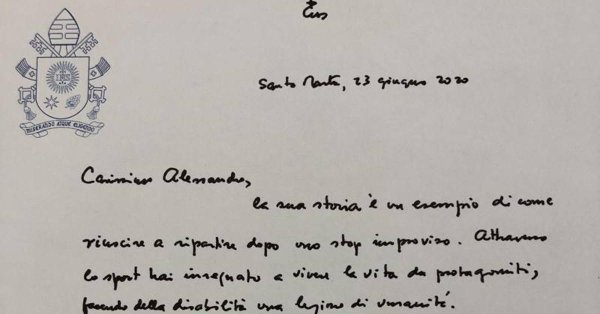 MISERANDO ATQUE ELIGENDO
Santa Marta, 23 giugno 2020
Carissimo Alessandro,
la sua storia è un esempio di come
riuscire a ripartire dopo uno stop improvviso. Attraverso
lo sport hai insegnato a vivere la vita da protagonisti,
facendo della disabilità una lezione di umanità.